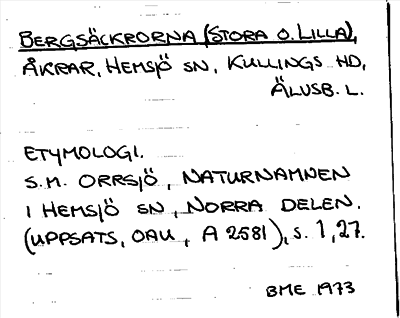 BERGSÄCKRORNA (STORA O. LILLA),
ÅKRAR, HEMSJÖ SN, KULLINGS HD,
ÄLVSB. L.
ETYMOLOGI.
S.M. ORRSJÖ, NATURNAMNEN
I HEMSJÖ SN, NORRA DELEN.
(UPPSATS, OAU, A 2581), S. 1, 27.
BME 1973